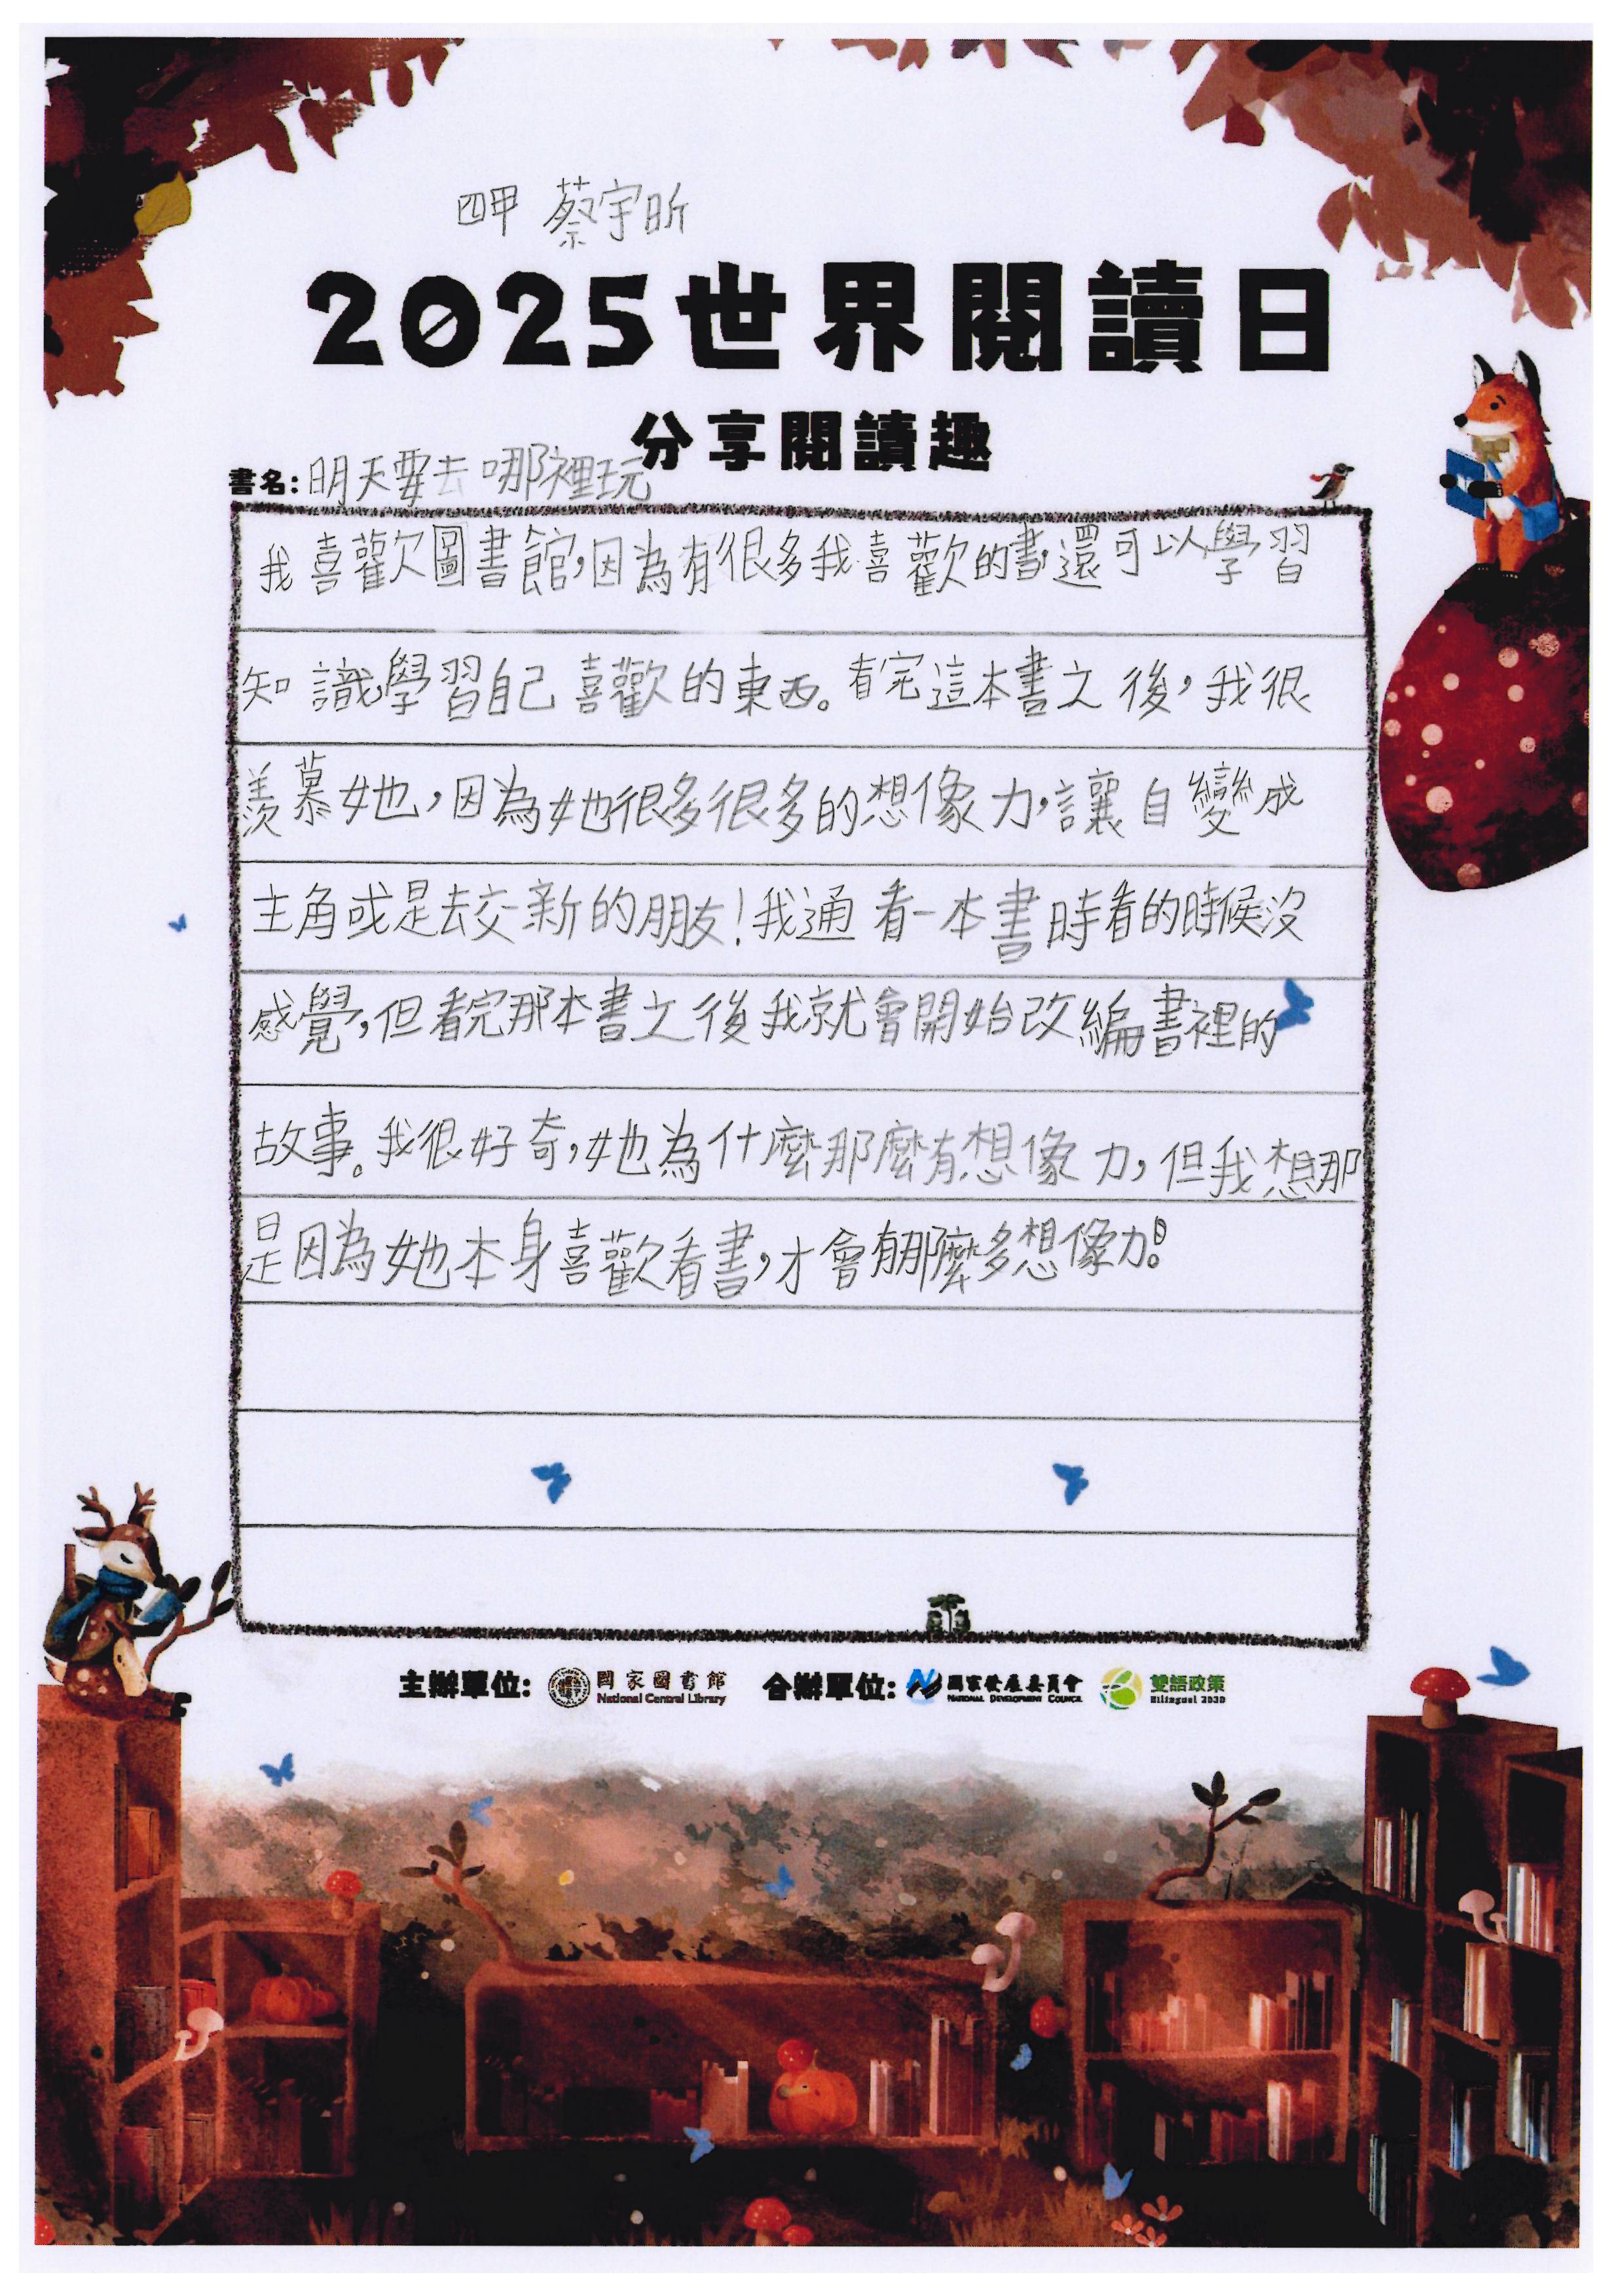 四甲 蔡宇昕
2025世界閱讀日
分享閱讀趣
書名：明天要去哪裡玩
我喜歡圖書館，因為有很多我喜歡的書，還可以學習
知識學習自己喜歡的東西。看完這本書之後，我很
羨慕她，因為她很多很多的想像力，讓自變成
主角或是去交新的朋友！我通看一本書時看的時候沒
感覺，但看完那本書之後我就會開始改編書裡的
故事。我很好奇，她為什麼那麼有想像力，但我想那
是因為她本身喜歡看書，才會有那麼多想像力！
主辦單位： 國家圖書館 合辦單位： 國家發展委員會 雙語政策
National Central Library NATIONAL DEVELOPMENT COUNCIL Bilingual 2030